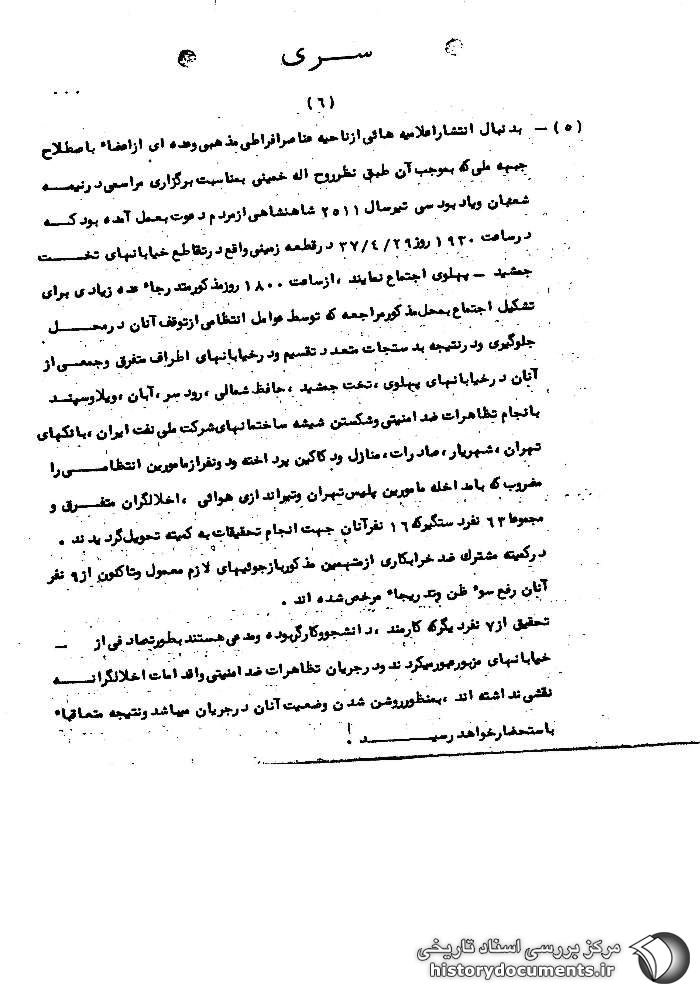 سری
...
(٦)
(٥) — بدنبال انتشار اعلامیه هائی از ناحیه عناصر افراطی مذهبی و عده ای از اعضاء باصطلاح
جبهه ملی که بموجب آن طبق نظر روح اله خمینی بمناسبت برگزاری مراسمی در نیمه
شعبان و یاد بود سی تیر سال ٢٥١١ شاهنشاهی از مردم دعوت بعمل آمده بود که
در ساعت ١٩٣٠ روز ٣٧/٤/٢٩ در قطعه زمینی واقع در تقاطع خیابانهای تخت
جمشید — پهلوی اجتماع نمایند ، از ساعت ١٨٠٠ روز مذکور متدرجاً عده زیادی برای
تشکیل اجتماع بمحل مذکور مراجعه که توسط عوامل انتظامی از توقف آنان در محل
جلوگیری و در نتیجه بدستجات متعدد تقسیم و در خیابانهای اطراف متفرق و جمعی از
آنان در خیابانهای پهلوی ، تخت جمشید ، حافظ شمالی ، رودسر ، آبان ، ویلا و سپند
بانجام تظاهرات ضد امنیتی و شکستن شیشه ساختمانهای شرکت ملی نفت ایران ، بانکهای
تهران ، شهریار ، صادرات ، منازل و دکاکین پرداخته و دو نفر از مامورین انتظامی را
مضروب که با مداخله مامورین پلیس تهران و تیراندازی هوائی ، اخلالگران متفرق و
مجموعا ٦٣ نفر دستگیر که ١٦ نفر آنان جهت انجام تحقیقات به کمیته تحویل گردیدند .
در کمیته مشترک ضد خرابکاری از متهمین مذکور بازجوئیهای لازم معمول و تاکنون از ٩ نفر
آنان رفع سوء ظن و تدریجاً مرخص شده اند .
— تحقیق از ٧ نفر دیگر که کارمند ، دانشجو و کارگر بوده و مدعی هستند بطور تصادفی از
خیابانهای مزبور عبور میکردند و در جریان تظاهرات ضد امنیتی و اقدامات اخلالگرانه
نقشی نداشته اند ، بمنظور روشن شدن وضعیت آنان در جریان میباشد و نتیجه متعاقباً
باستحضار خواهد رسید !
مرکز بررسی اسناد تاریخی
historydocuments.ir